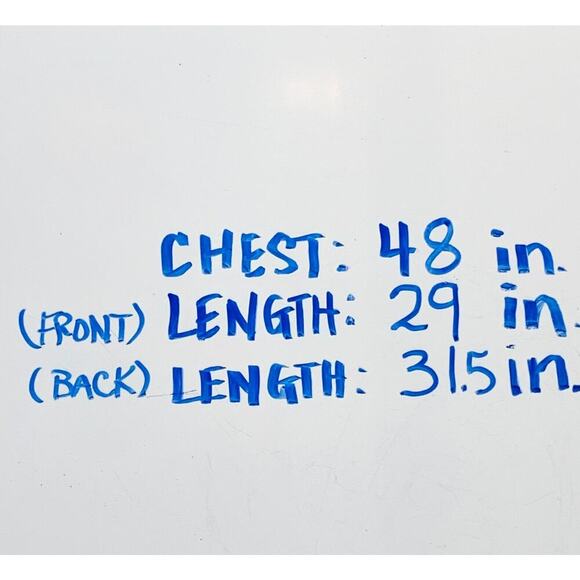 CHEST: 48 in.
(FRONT) LENGTH: 29 in.
(BACK) LENGTH: 31.5 in.